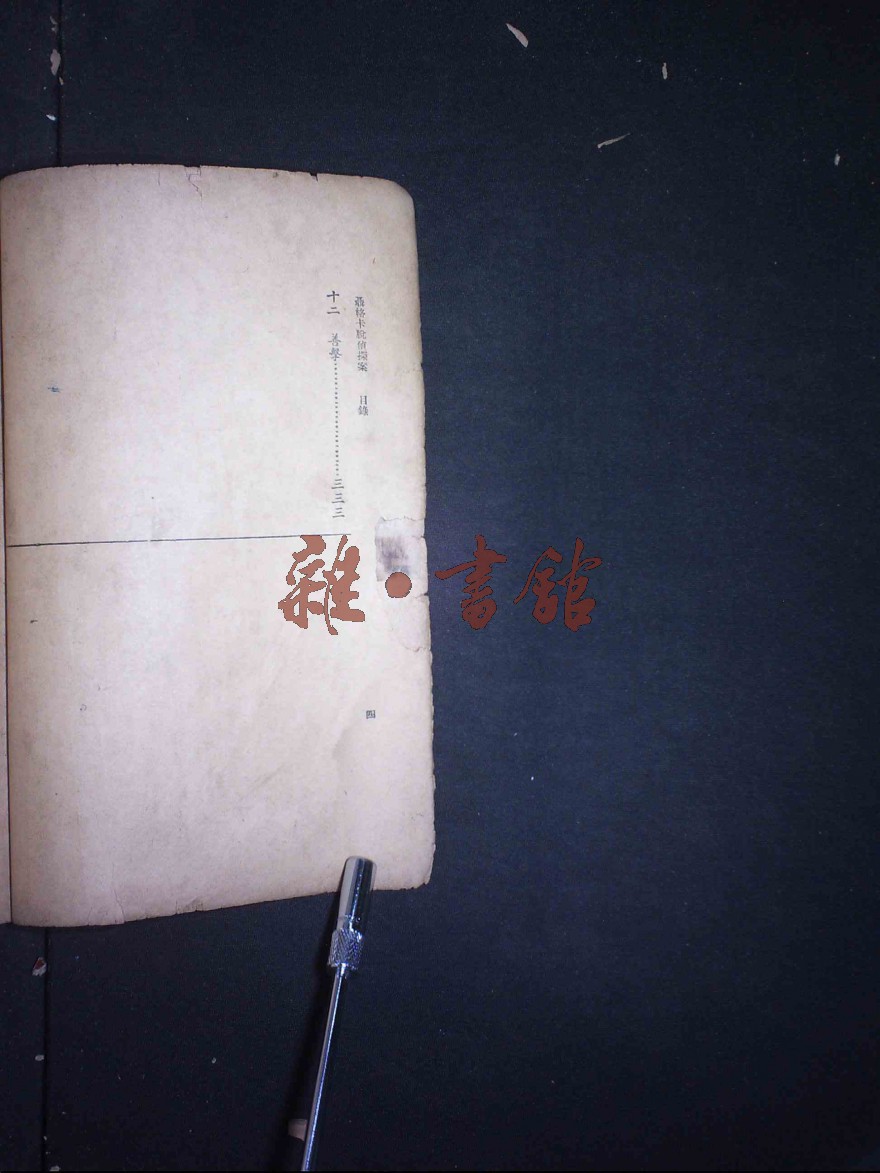 聶格卡脫偵探案 目錄
十二 善舉⋯⋯⋯⋯⋯⋯⋯⋯三三三
四
雜·書館